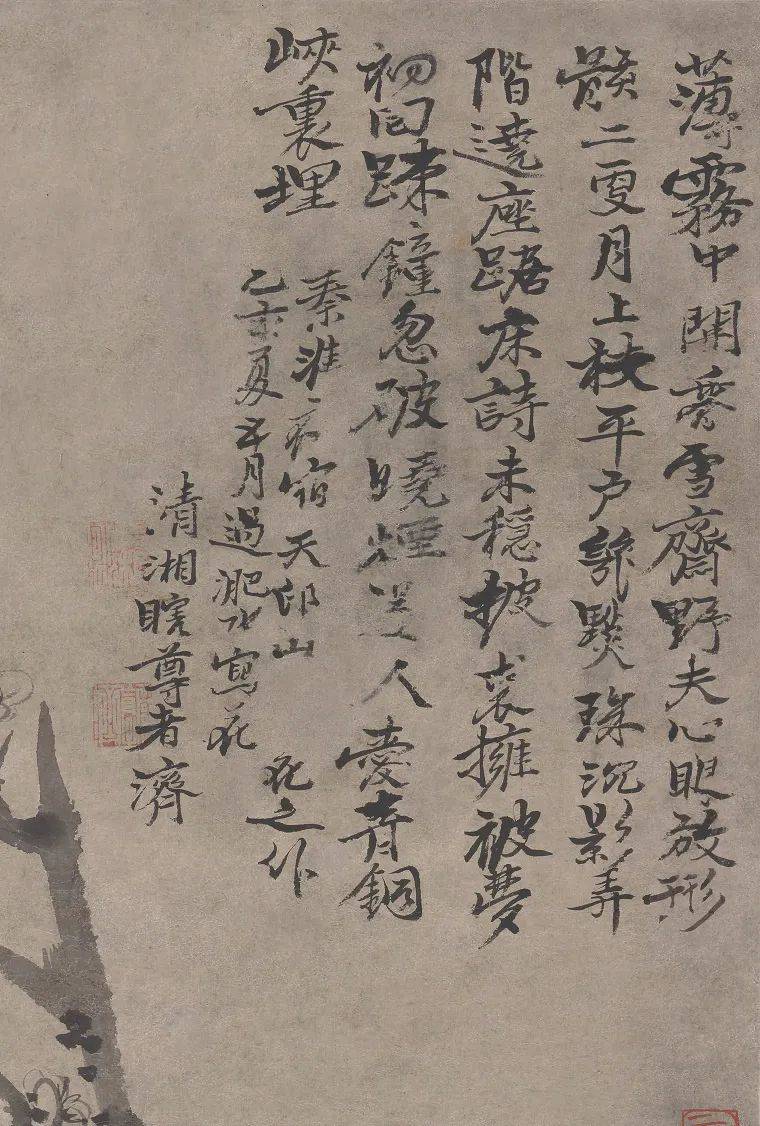 薄霧中開香雪齋野夫心眼放形
骸二更月上枝平戶點珠沉影弄
階遶座踞床詩未穩披裘擁被夢
初回踈鐘忽破曉煙送人愛青銅
峽裏埋
秦淮宿天印山
花之作
乙亥夏五月
過淝水寫花
清湘瞎尊者濟